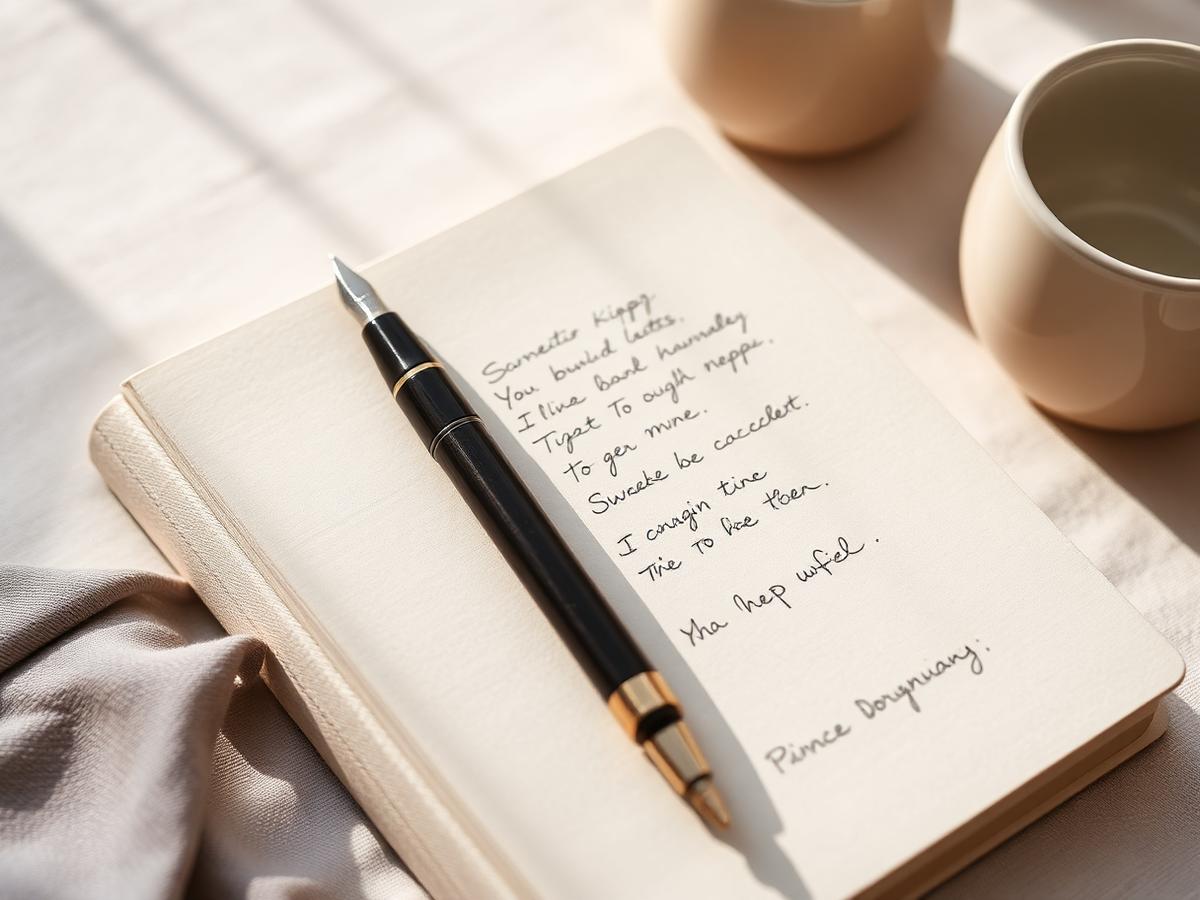 Sametir Kippy
You bunild leitts.
I llive banl haumaley
Tizat To ough neppe.
to ger mine.
Swseke be caccclert.
I cangin tire
The To kae toen.
Yha hep wfiel.
Pinnce Dorgnuany: